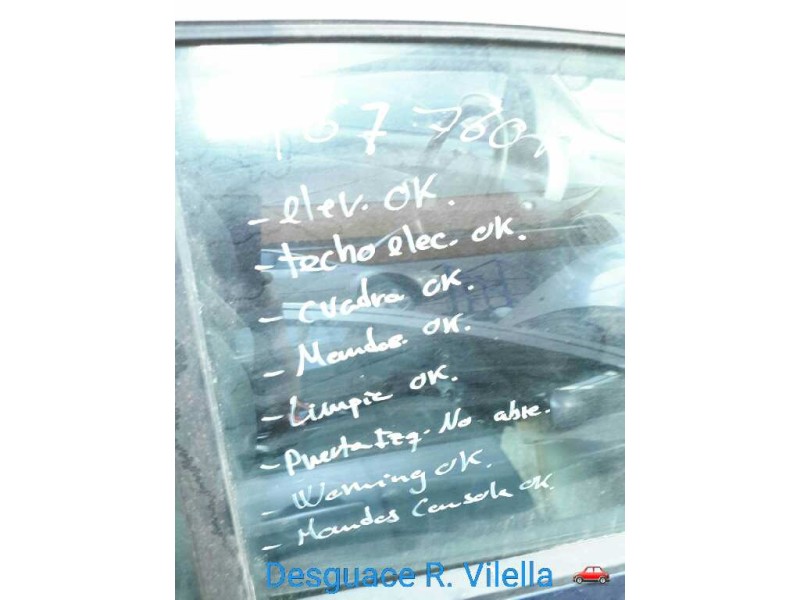 167 780
- elev. OK.
- techo elec. OK.
- Cuadra OK.
- Mandos. OK.
- Limpia OK.
- Puerta Izq. No abre.
- Warning OK.
- Mandos Consola OK.
Desguace R. Vilella